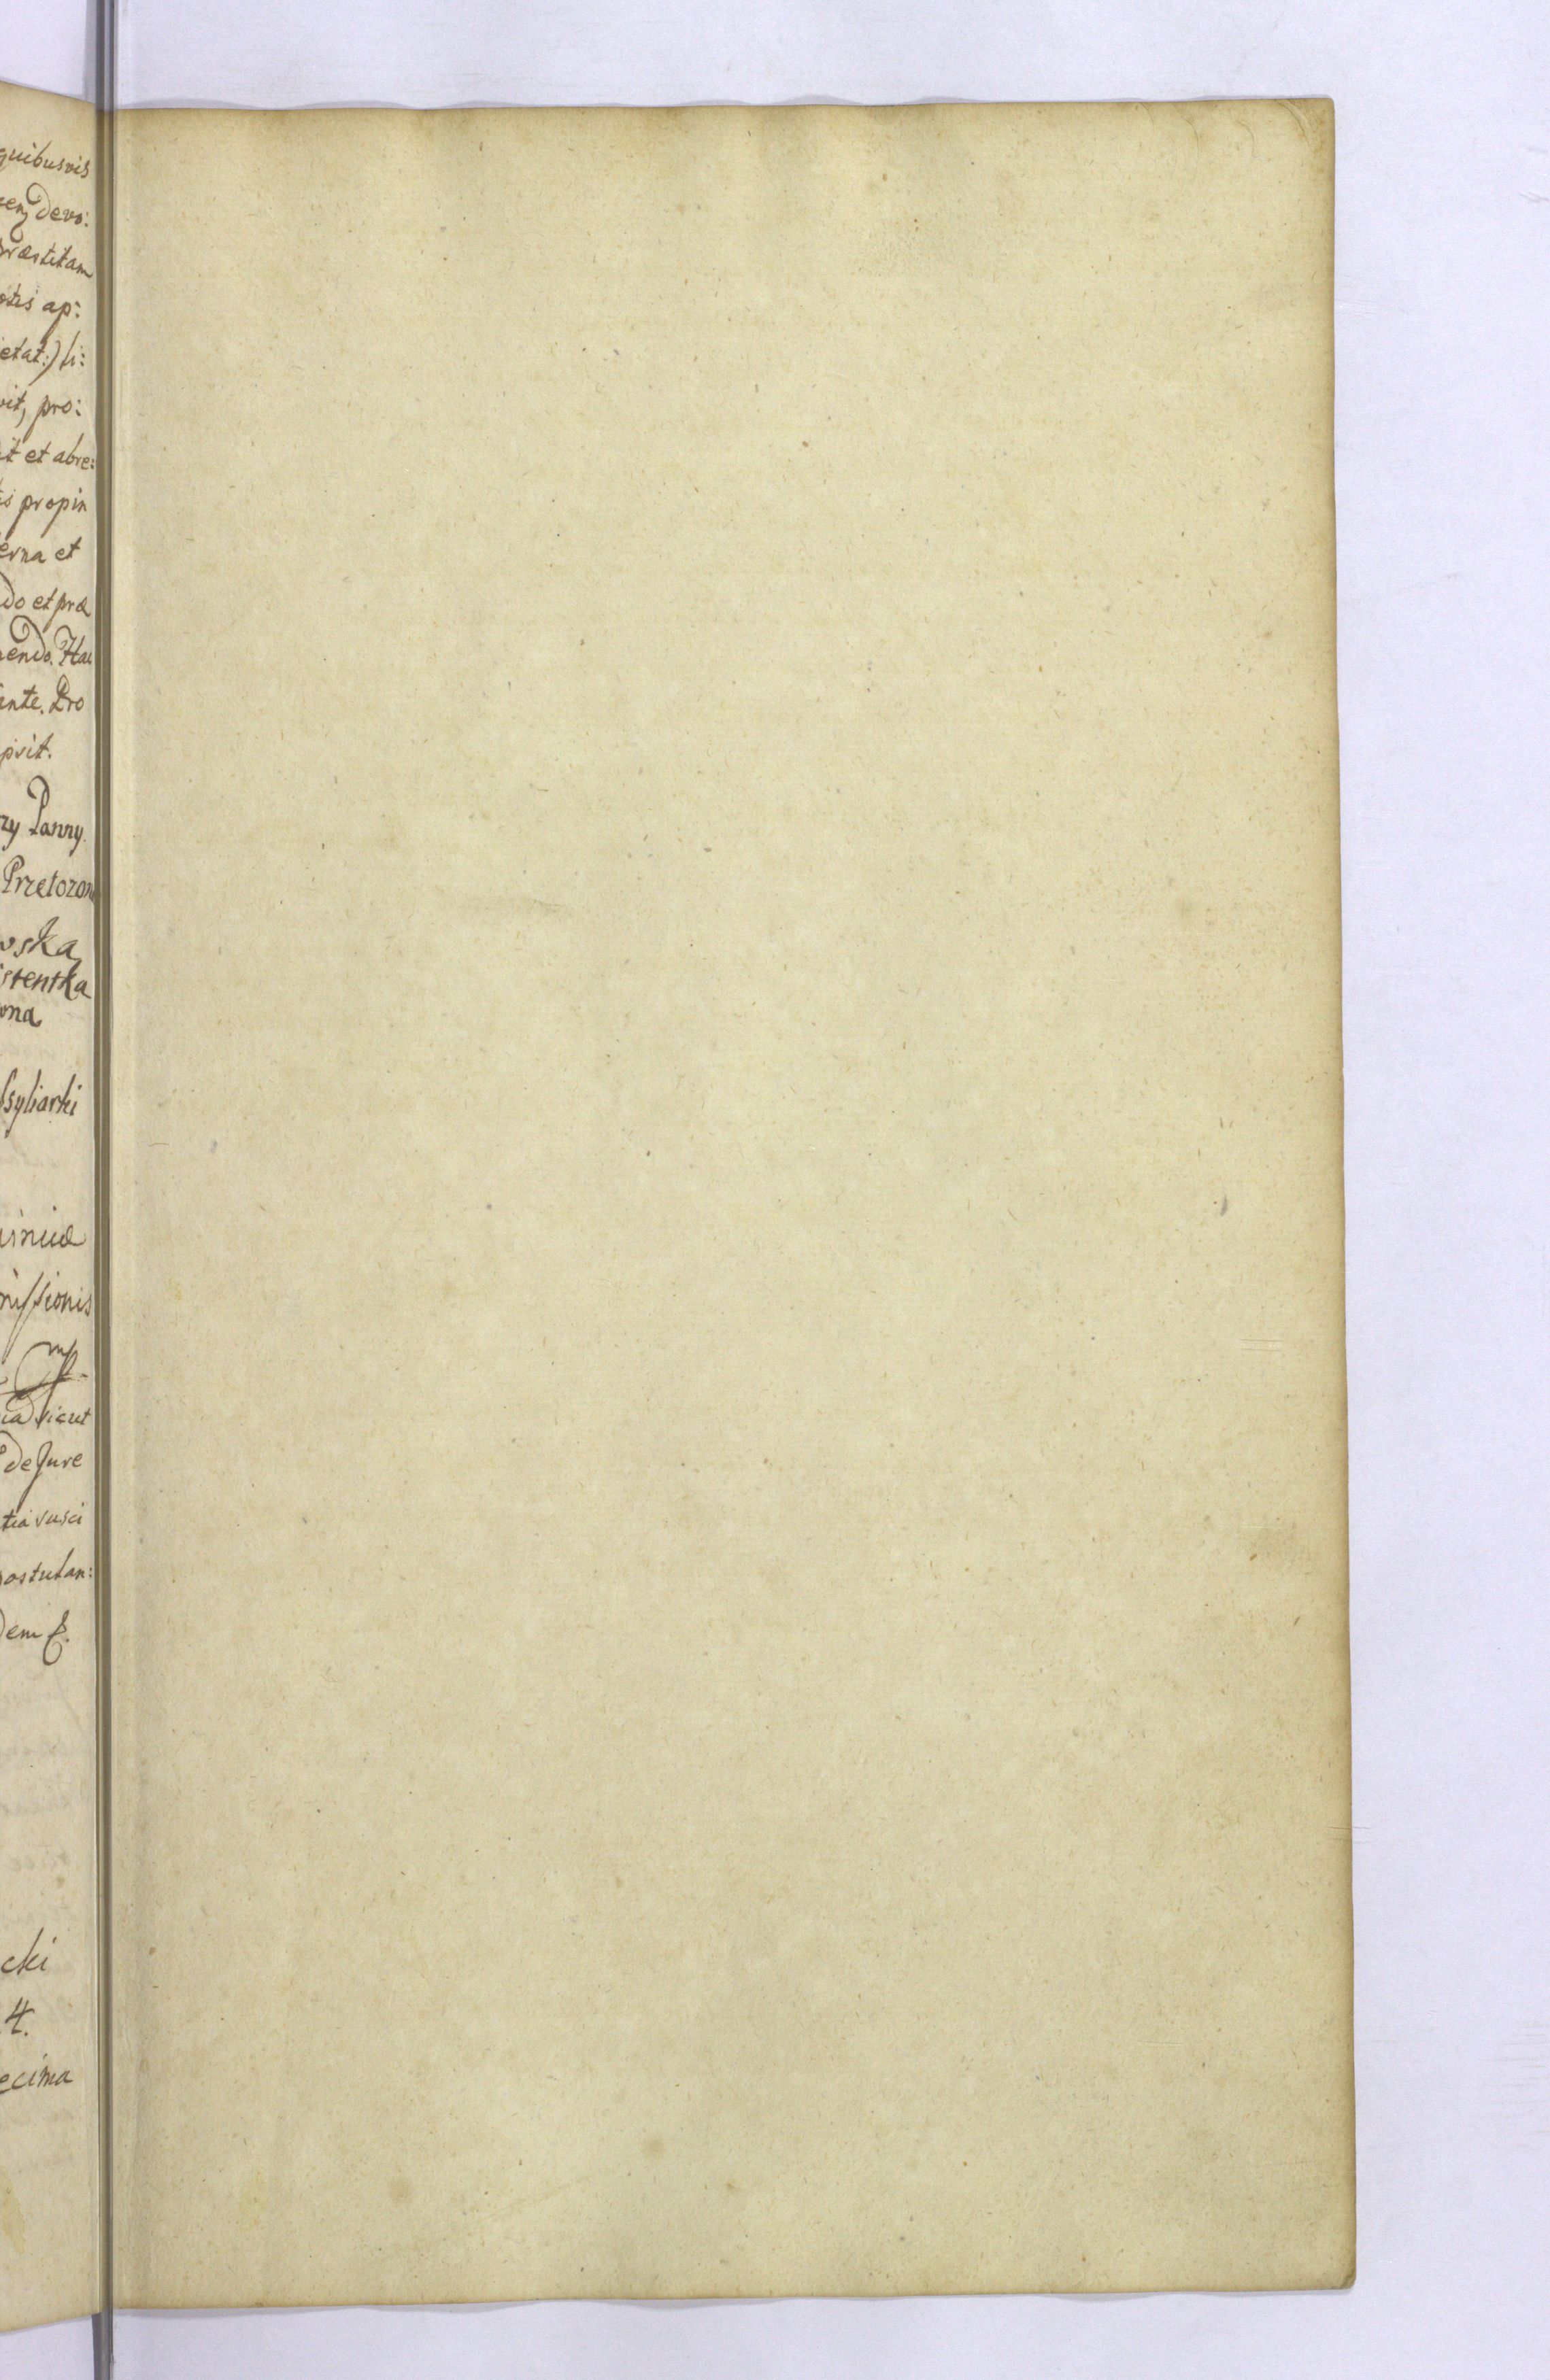 quibusvis
devo:
præstitam
ap:
etat:) li:
vit, pro:
it et abre:
is propin
erna et
do et præ
endo. Hac
ente. Pro
psit.
ry Panny.
Przełożon
wska
istentka
ona
syliarki
missionis
sicut
de Jure
tia susci
postulan:
dem
cki
4.
ecima